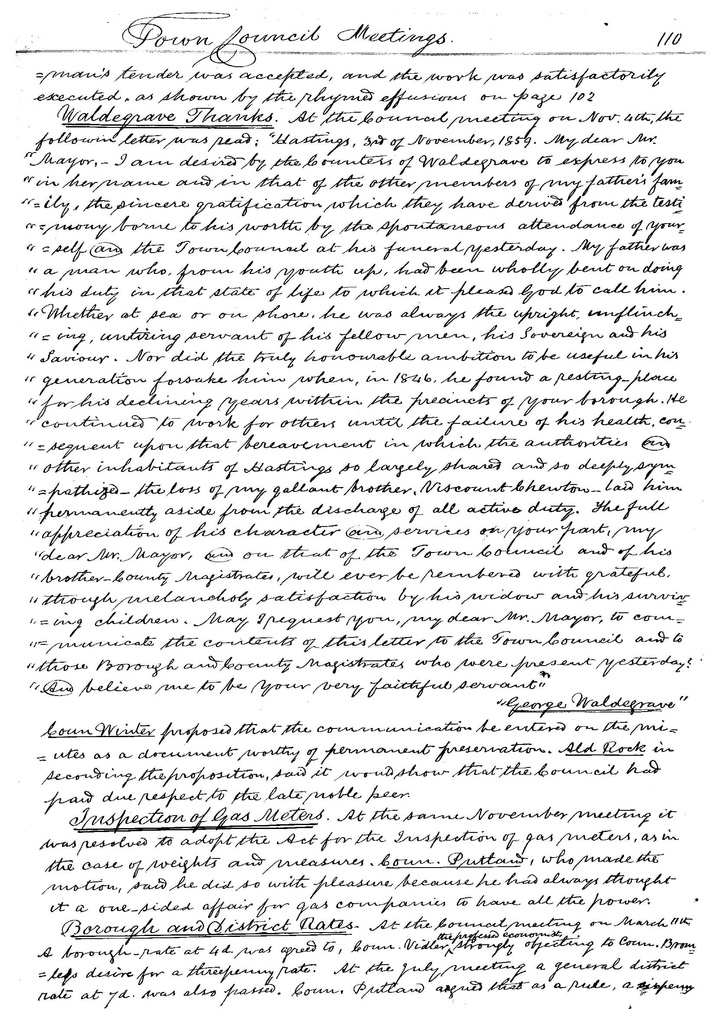 Town Council Meetings. 110
=man's tender was accepted, and the work was satisfactorily
executed, as shown by the rhymed effusions on page 102
Waldegrave Thanks. At the Council meeting on Nov. 4th, the
followin letter was read; "Hastings, 3rd of November, 1859. My dear Mr.
"Mayor,- I am desired by the Counters of Waldegrave to express to you
"in her name and in that of the other members of my father's fam=
"=ily, the sincere gratification which they have derived from the testi
"=mony borne to his worth by the spontaneous attendance of your=
"=self and the Town Council at his funeral yesterday. My father was
"a man who, from his youth up, had been wholly bent on doing
"his duty in that state of life to which it pleased God to call him.
"Whether at sea or on shore, he was always the upright, unflinch=
"=ing, untiring servant of his fellow men, his Sovereign and his
"Saviour. Nor did the truly honourable ambition to be useful in his
"generation forsake him when, in 1846, he found a resting-place
"for his declining years within the precincts of your borough. He
"continued to work for others until the failure of his health, con=
"=sequent upon that bereavement in which the authorities and
"other inhabitants of Hastings so largely shared and so deeply sym
"=pathized - the loss of my gallant brother, Viscount Chewton - laid him
"permanently aside from the discharge of all active duty. The full
"appreciation of his character and services on your part, my
"dear Mr. Mayor, and on that of the Town Council and of his
"brother-County Magistrates, will ever be rembered with grateful,
"though melancholy satisfaction by his widow and his surviv=
"=ing children. May I request you, my dear Mr. Mayor, to com=
"=municate the contents of this letter to the Town Council and to
"those Borough and County Magistrates who were present yesterday?
"And believe me to be Your very faithful servant"
"George Waldegrave"
Coun Winter proposed that the communication be entered on the mi=
=utes as a document worthy of permanent preservation. Ald Rock in
seconding the proposition, said it woud show that the Council had
paid due respect to the late noble peer.
Inspection of Gas Meters. At the same November meeting it
was resolved to adopt the Act for the Inspection of gas meters, as in
the case of weights and measures. Coun. Putland, who made the
motion, said he did so with pleasure because he had always thought
it a one-sided affair for gas companies to have all the power.
Borough and District Rates. At the Council meeting on March 11th
A borough-rate at 4d. was agreed to, Coun. Vidler, the professed economist, strongly objecting to Coun. Broom
=legs desire for a threepenny rate. At the July meeting a general district
rate at 7d. was also passed. Coun. Putland argued that as a rule, a sixpenny